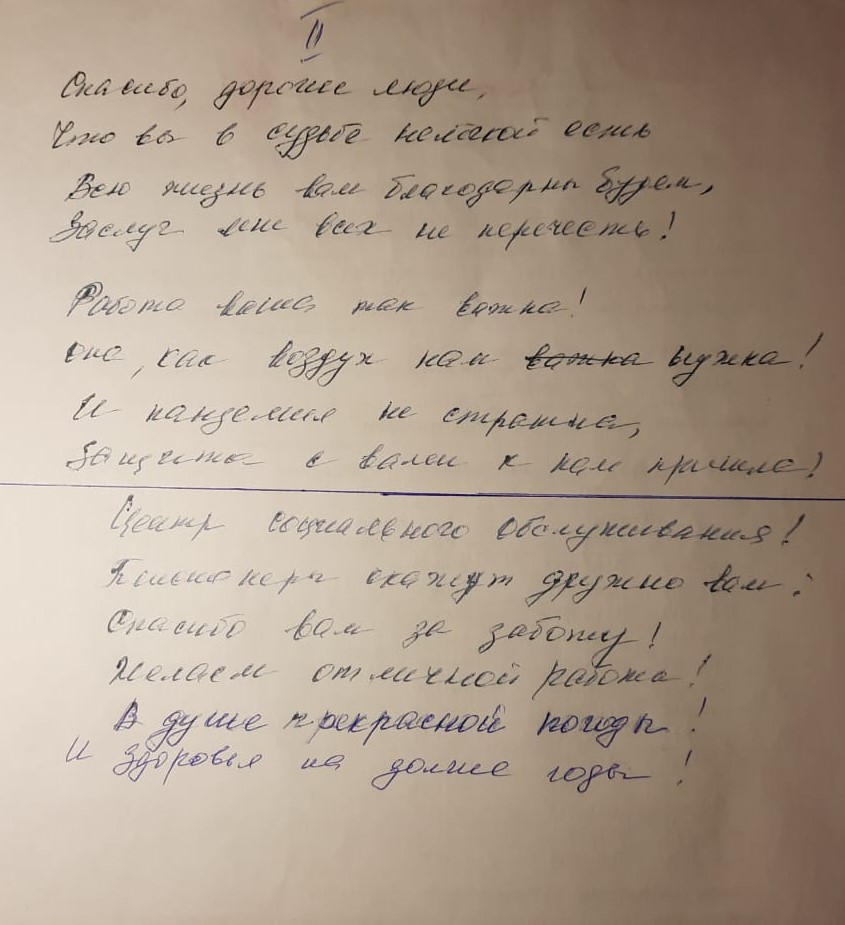 II
Спасибо, дорогие люди,
Что вы в судьбе нелёгкой есть
Всю жизнь вам благодарны будем,
Заслуг мне всех не перечесть!
Работа ваша так важна!
Она, как воздух нам важна нужна!
И пандемия не страшна,
Защита с вами к нам пришла!
Центр социального обслуживания!
Пенсионеры скажут дружно вам:
Спасибо вам за заботу!
Желаем отличной работы!
В душе прекрасной погоды!
И здоровья на долгие годы!